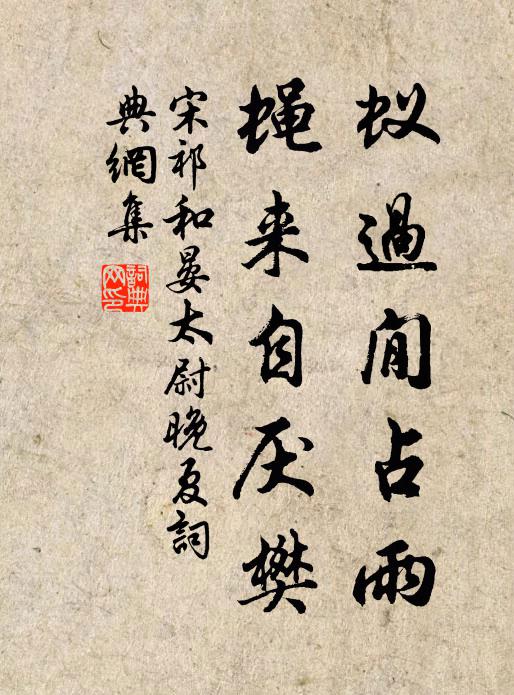 蚁過閒占雨
蝇来自厌樊
宋祁和晏太尉晚夏詞
典網集
詞典网印